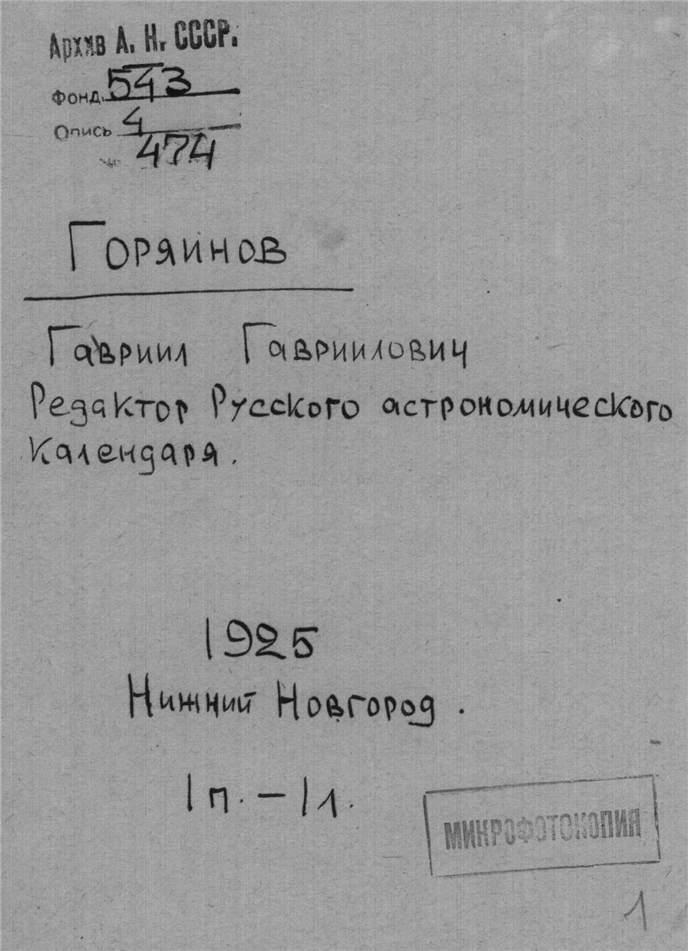 Архив А. Н. СССР.
Фонд. 543
Опись 4
№ 474
Горяинов
Гавриил Гавриилович
Редактор Русского астрономического
календаря.
1925
Нижний Новгород.
1 п. – 1 л.
МИКРОФОТОКОПИЯ
1